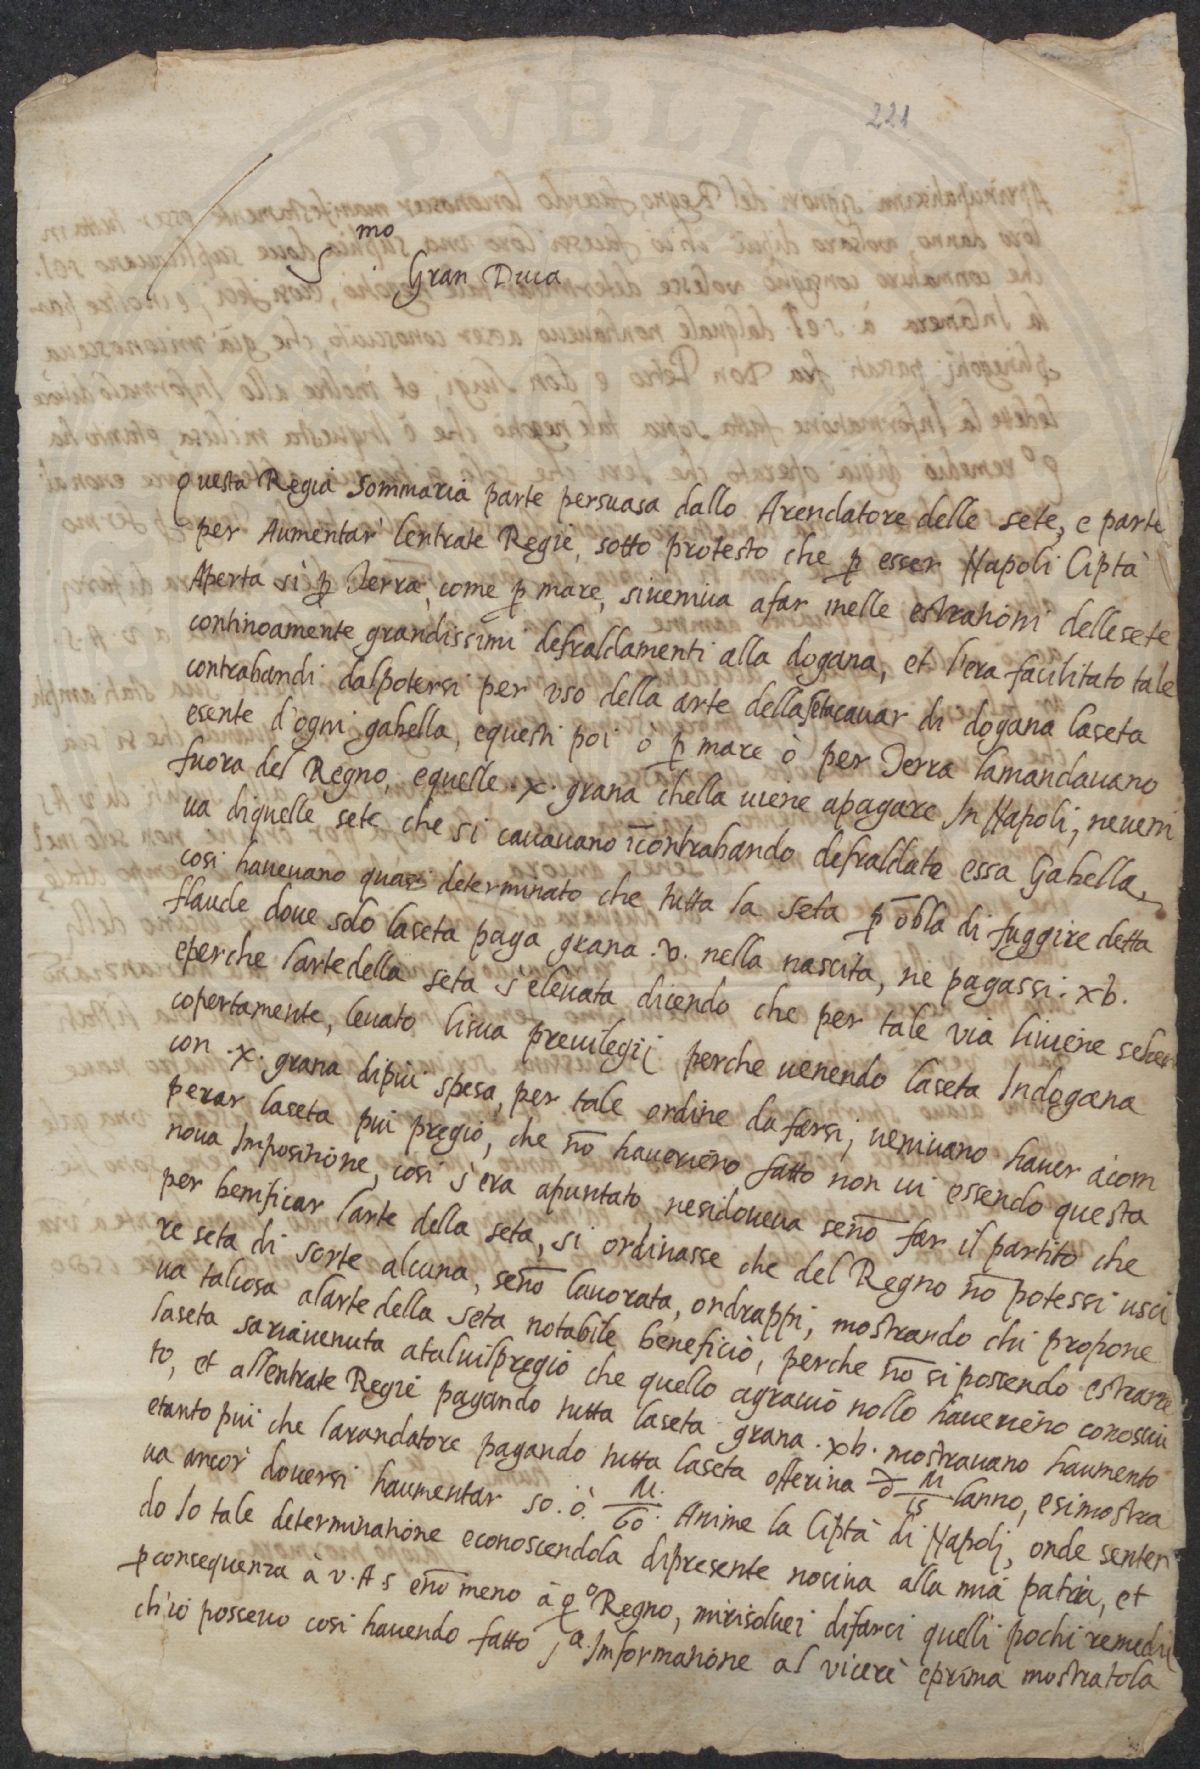 221
S.mo Gran Duca
Questa Regia Sommaria parte persuasa dallo Arendatore delle sete, e parte
per Aumentar lentrate Regie, sotto protesto che p esser Napoli Ciptà
Aperta sì p Terra, come p mare, siveniva afar nelle estrationi delle sete
continoamente grandissimi defraldamenti alla dogana, et l'era facilitato tale
contrabandi dalpotersi per uso della arte della seta cavar di dogana laseta
esente d'ogni gabella, equesti poi o p mare ò per Terra lamandavano
fuora del Regno, equelle .x. grana chella viene apagare In Napoli, neveni
va diquelle sete che si cavavano icontrabando defraldata essa Gabella,
cosi havevano quasi determinato che tutta la seta p obla di fuggire detta
flaude dove solo laseta paga grana .v. nella nascita, ne pagassi .xb.
eperche lartedella seta s'elevata dicendo che per tale via liviene
copertamente, levato lisua previlegij perche venendo laseta Indogana
con .x. grana dipiù spesa, per tale ordine da farsi, venivano haver àcom
perar laseta più pregio, che no haverieno fatto non vi essendo questa
nova Impositione, cosi s'era apuntato, nesidoveva seno far il partito che
per benificar larte della seta, si ordinasse che del Regno no potessi usci
re seta di sorte alcuna, seno lavorata, ondrappi, mostrando chi propone
va talcosa alarte della seta notabile beneficio, perche no si possendo estrarre
laseta sariavenuta ataluilpregio che quello agravio nollo haverieno conosciu
to, et allentrate Regie pagando tutta laseta grana .xb. mostravano haumento
etanto più che larandatore pagando tutta laseta offeriva M/15 lanno, esimostra
va ancor doversi haumentar 50. ò M/60. Anime la Ciptà di Napoli, onde senten
do Io tale determinatione econoscendola dipresente nociva alla mia patria, et
pconsequenza à V.A S eno meno à qo Regno, mirisolvei difarci quelli pochi remedij
ch'io possevo cosi havendo fatto Informatione al vicerè eprima mostratola